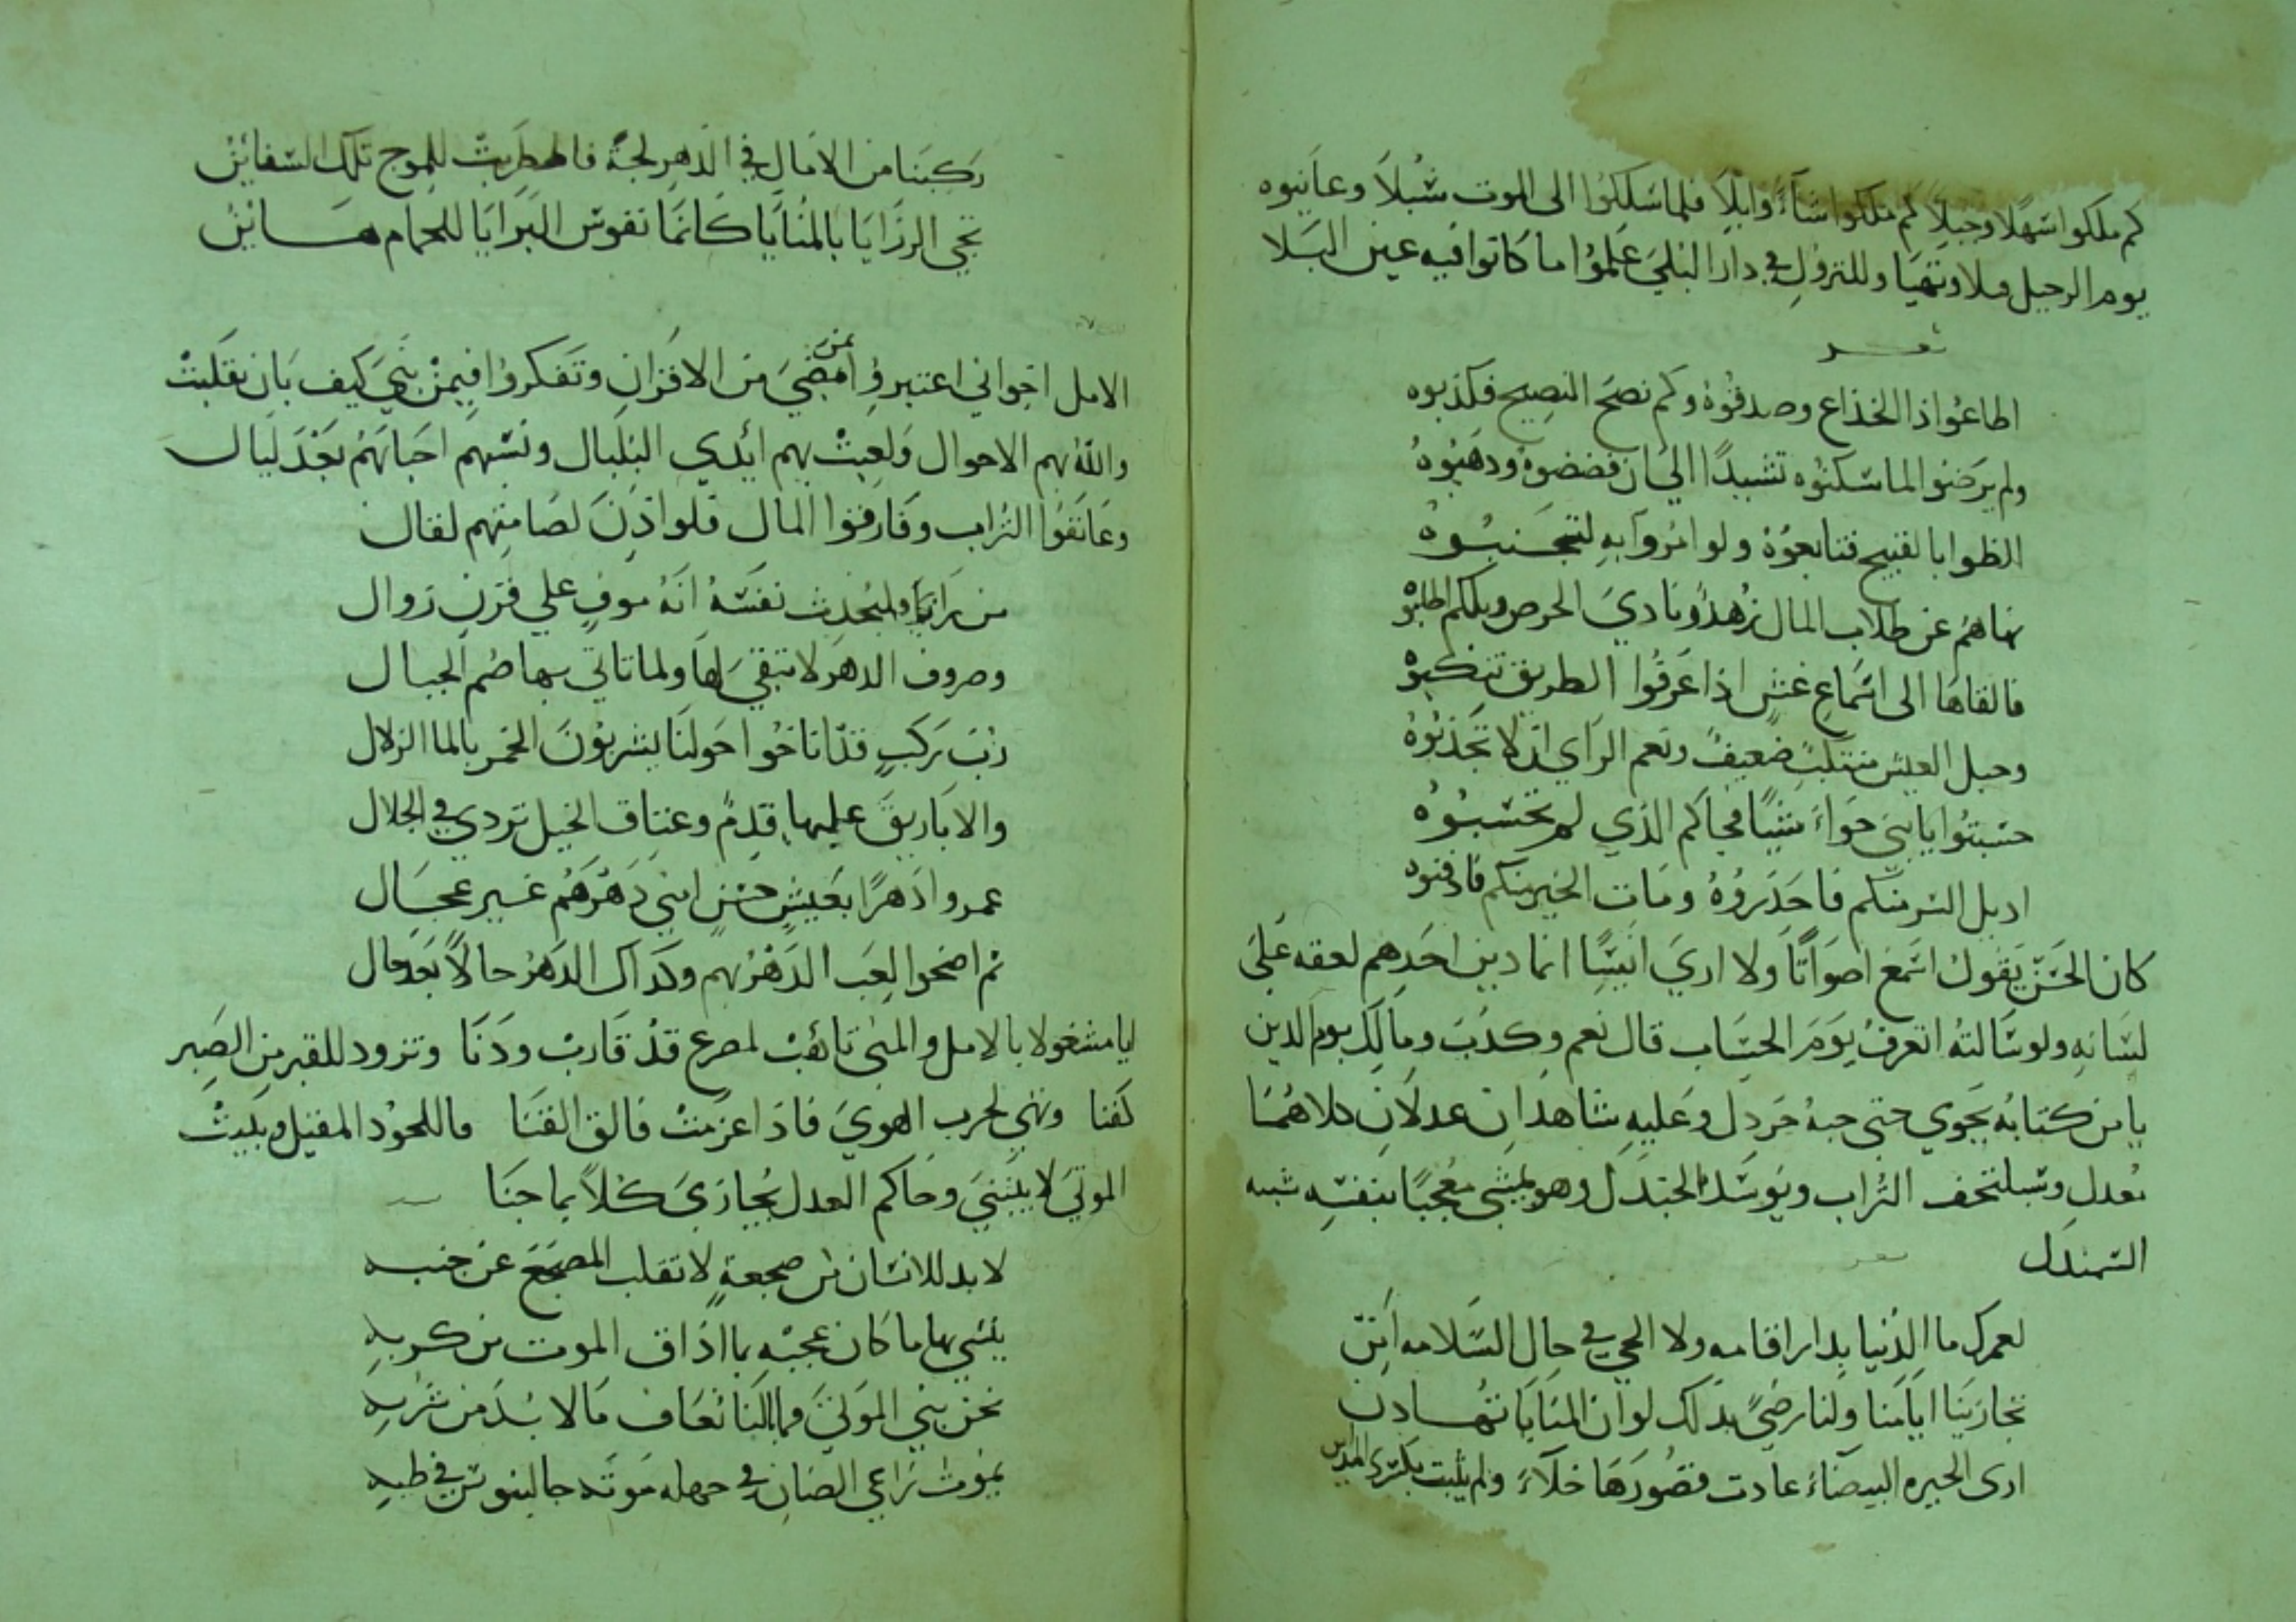 كم ملكوا سهلا وجبلا كم ملكوا شاء وابلا فلما سلكوا الى الموت سبلا وعاينوه
يوم الرحيل ملا وتهيا وللنزول في دار البلى علموا ما كانوا فيه عين البلا
شعر
اطاعوا ذا الخداع وصدقوه وكم نصح النصيح فكذبوه
ولم يرضوا لما سكنوه تشييدا الى ان فضضوه وذهبوه
الظوا بالقبيح فتابعوه ولو امروا به لتجنبوه
نهاهم عن طلاب المال زهد ونادى الحرص ويلكم اطلبوه
فالقاها الى اسماع غش اذا عرفوا الطريق تنكبوه
وحبل العيش منتكب ضعيف ونعم الراي ان لا تجذبوه
حسبتوا يا بني حواء شيا فجاكم الذي لم تحسبوه
اديل الشر منكم فاحذروه ومات الخير منكم فادفنوه
كان الحسن يقول اسمع اصواتا ولا ارى انيسا انما دين احدهم لعقه على
لسانه ولو سالته اتعرف يوم الحساب قال نعم وكذب ومالك يوم الدين
يا من كتابه يحوي حتى حبة خردل وعليه شاهدان عدلان كلاهما
معدل وسيلتحف التراب ويوسد الجندل وهو يمشي معجبا بنفسه شبه
الشمندل شعر
لعمرك ما الدنيا بدار اقامه ولا الحي في حال السلامه امن
تجازينا ايامنا ولنا رضى بذلك لو ان المنايا تهادن
ارى الحيره البيضاء عادت قصورها خلاء ولم يثبت بكسرى المداين
ركبنا من الامال في الدهر لجة فاضطربت للموج تلك السفاين
تجي الرزايا بالمنايا كانما نفوس البرايا للحمام رهاين
الامل اخواني اعتبروا بمن مضى من الاقران وتفكروا فيمن بنى كيف بان تقلبت
والله بهم الاحوال ولعبت بهم ايدي البلبال ونسيهم احبابهم بعد ليال
وعانقوا التراب وفارقوا المال فلو اذن لصامتهم لقال
من رانا وليحدث نفسه انه موف على قرن زوال
وصروف الدهر لا تبقى لها ولما تاتي بها صم الجبال
رب ركب قد اناخوا حولنا يشربون الخمر بالما الزلال
والاباريق عليها قدم وعتاق الخيل تردي في الجلال
عمروا دهرا بعيش حسن امني دهرهم غير عجال
ثم اضحوا لعب الدهر بهم وكذاك الدهر حالا بعد حال
ايا مشغولا بالامل والمنى تاهب لمصرع قد قارب ودنا وتزود للقبر من الصبر
كفنا وتهي لحرب الهوى فاذا عزمت فالق القنا ما للحود المقيل وبيت
الموتى لا يبتنى وحاكم العدل يجازى كلا بما جنا
لا بد للانسان من ضجعة لا تقلب المضجع عن جنبه
ينسي بها ما كان عجبه بما اذاق الموت من كربه
نحن بني الموتى فما بالنا نعاف ما لا بد من شربه
يموت راعي الضان في جهله موته جالينوس في طبه